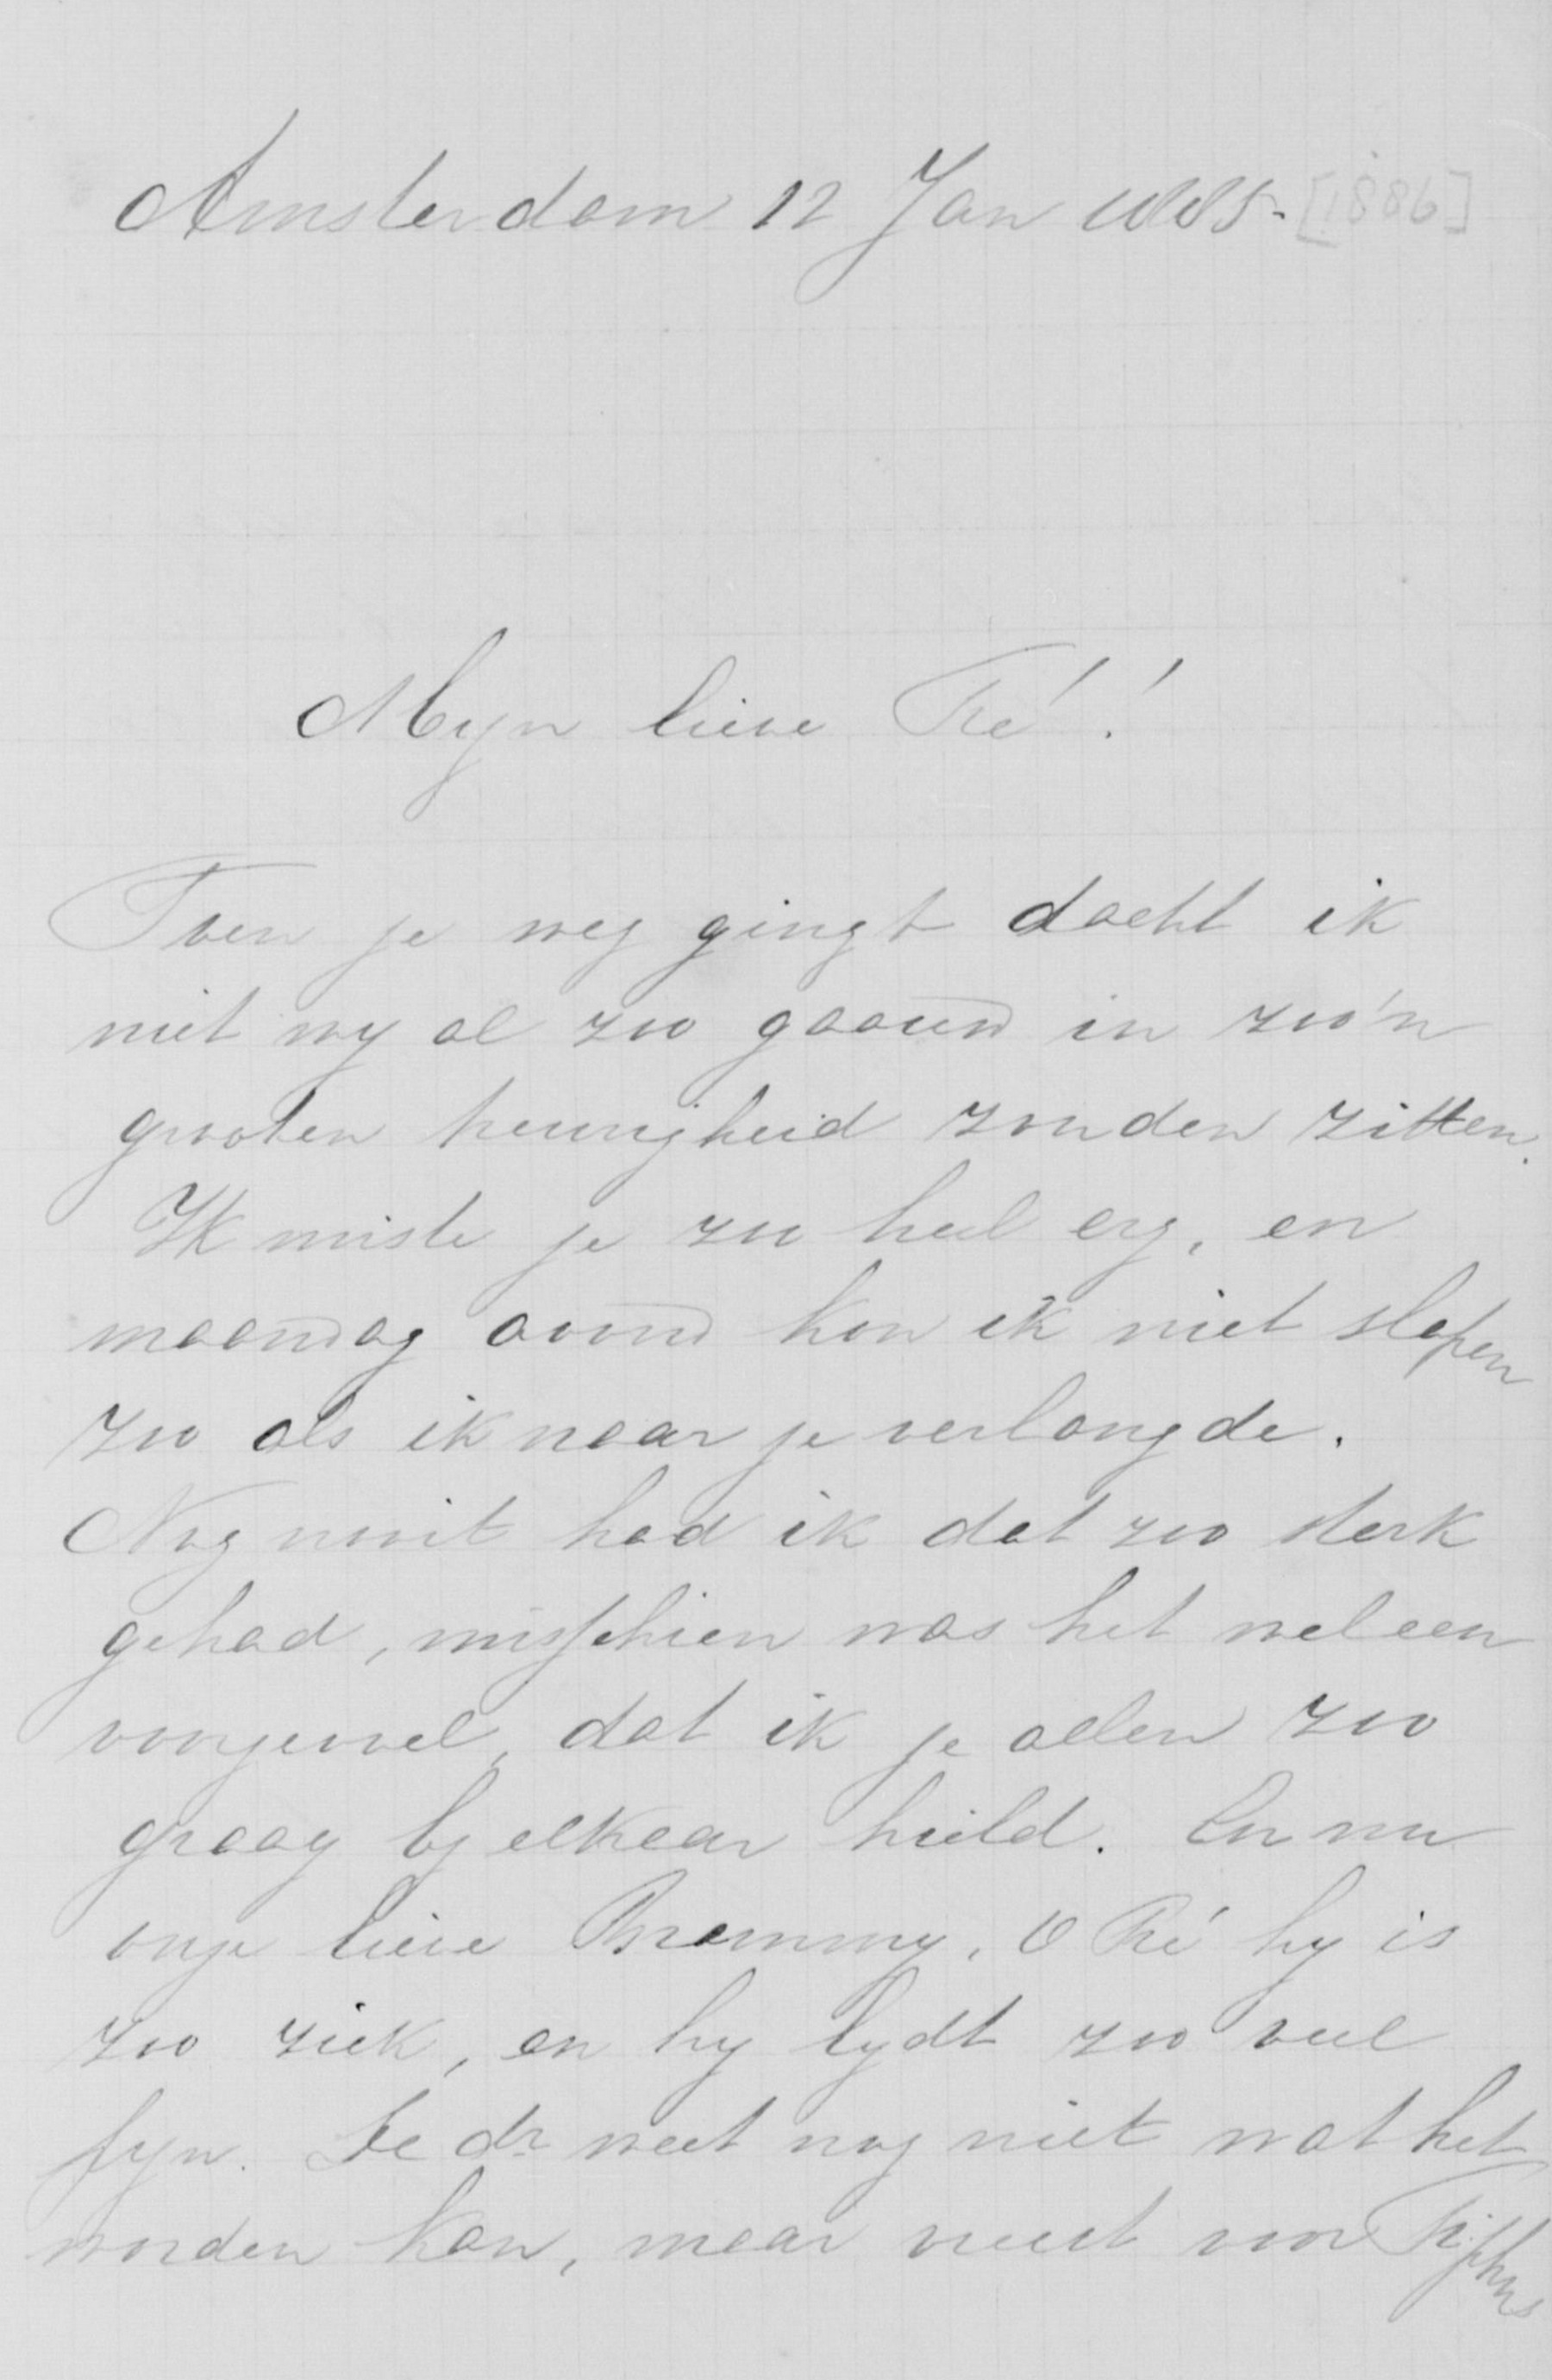 Amsterdam 12 Jan 1885. [1886]
Myn lieve Ré!
Toen je weg gingt dacht ik
niet wy al zoo gaauw in zoo'n
grooten treurigheid zouden zitten.
Ik miste je zoo heel erg, en
maandag avond kon ik niet slapen
zoo als ik naar je verlangde.
Nog nooit had ik dat zoo sterk
gehad, misschien was het wel een
voorgevoel, dat ik je allen zoo
graag by elkaar hield. En nu
onze lieve Brammy. O Ré hy is
zoo ziek, en hy lydt zoo veel
pyn. De dr weet nog niet wat het
worden kan, maar vreest voor Tijphus